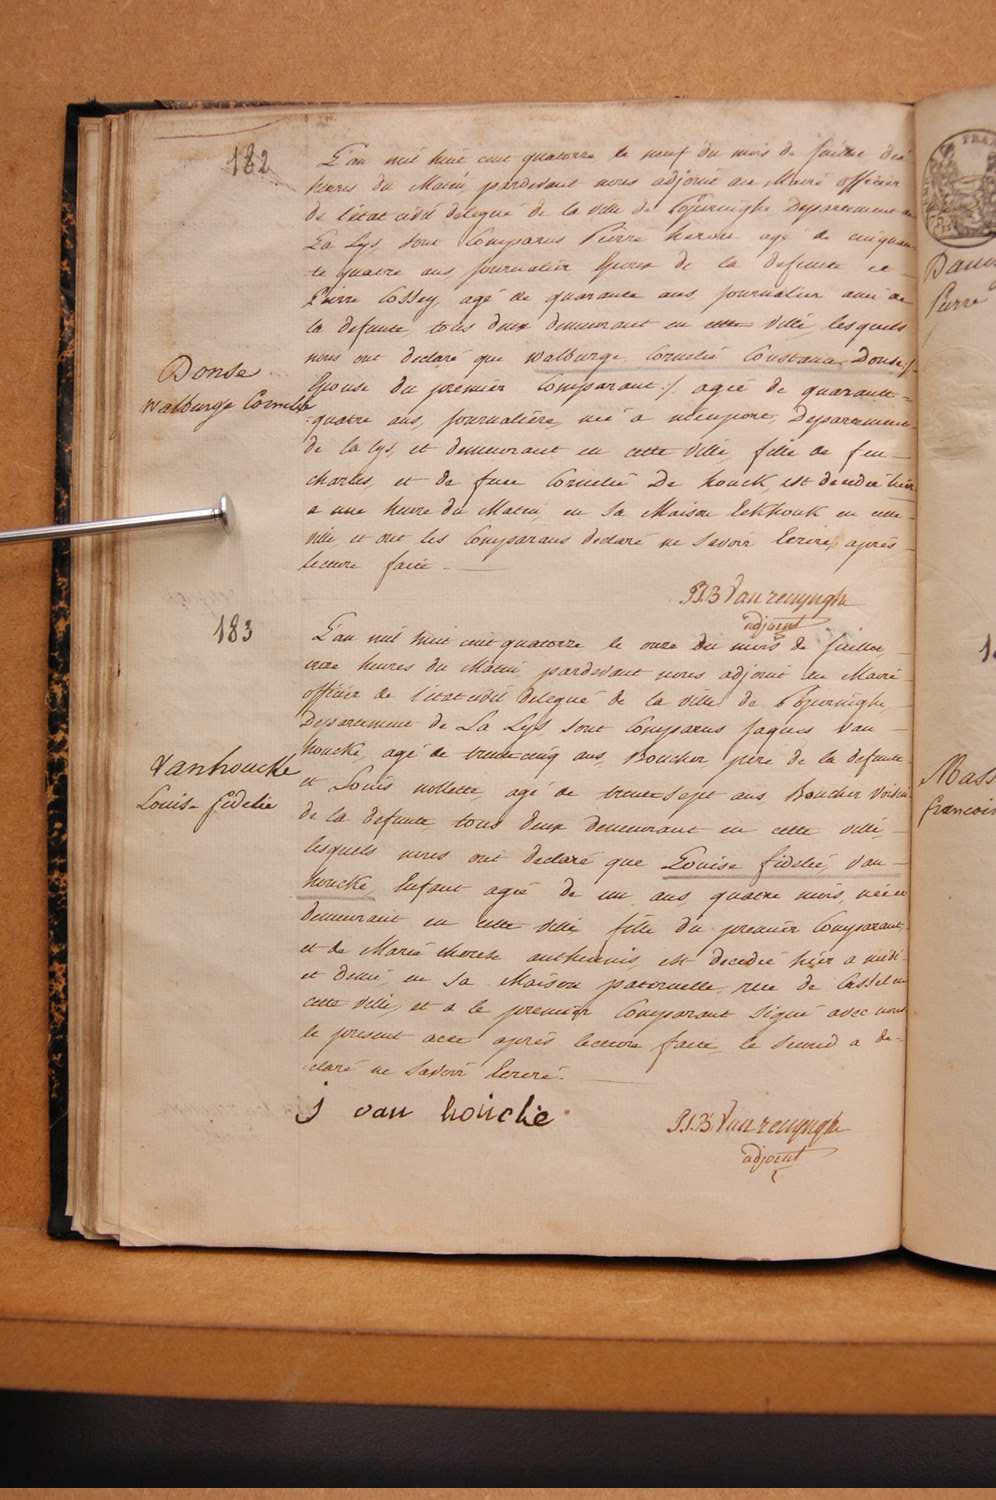 182
L'an mil huit cent quatorze le neuf du mois de juillet dix
heures du Matin pardevant nous adjoint au Maire officier
de l'état civil delegué de la ville de Poperinghe Departement de
La Lys, sont Comparus Pierre heron agé de cinquan
te quatre ans, journalier Epoux de la defunte et
Pierre Cossey, agé de quarante ans, journalier ami de
la defunte tous deux demeurant en cette ville, lesquels
nous ont declaré que Walburge Cornelie Constance Donse /.
Donse
Walburge Cornelie
Epouse du premier Comparant ./. agée de quarante =
quatre ans, journalière, née a nieuport, Departement
de la lys, et demeurant en cette ville fille de feu
charles, et de feue Cornelie De houck, est decedée hier
a une heure du Matin, en sa Maison Eekhouk en cette
ville et ont les Comparans declaré ne savoir Ecrire, après
lecture faite.
P.J.B Vanrenynghe
adjoint
183
L'an mil huit cent quatorze le onze du mois de juillet
heures du Matin pardevant nous adjoint au Maire
officier de l'état civil delegué de la ville de Poperinghe,
Departement de La Lys sont Comparus jaques Van
houcke, agé de trente cinq ans, Boucher père de la defunte
Vanhoucke
Louise fidelie
et Louis nollette, agé de trente sept ans Boucher Voisin
de la defunte, tous deux demeurant en cette ville,
lesquels nous ont declaré que Louise fidelie, Van
houcke, Enfant agée de un ans, quatre mois, née et
demeurant en cette ville fille du premier Comparant,
et de Marie therese antheunis, est decedée hier a midi
et demi, en sa Maison paternelle, rue de Cassel en
cette ville, et a le premier Comparant signé avec nous
le present acte après lecture faite le second a de-
claré ne savoir Ecrire.
J van houcke
P.J.B Vanrenynghe
adjoint
Pierre
Mass
francois